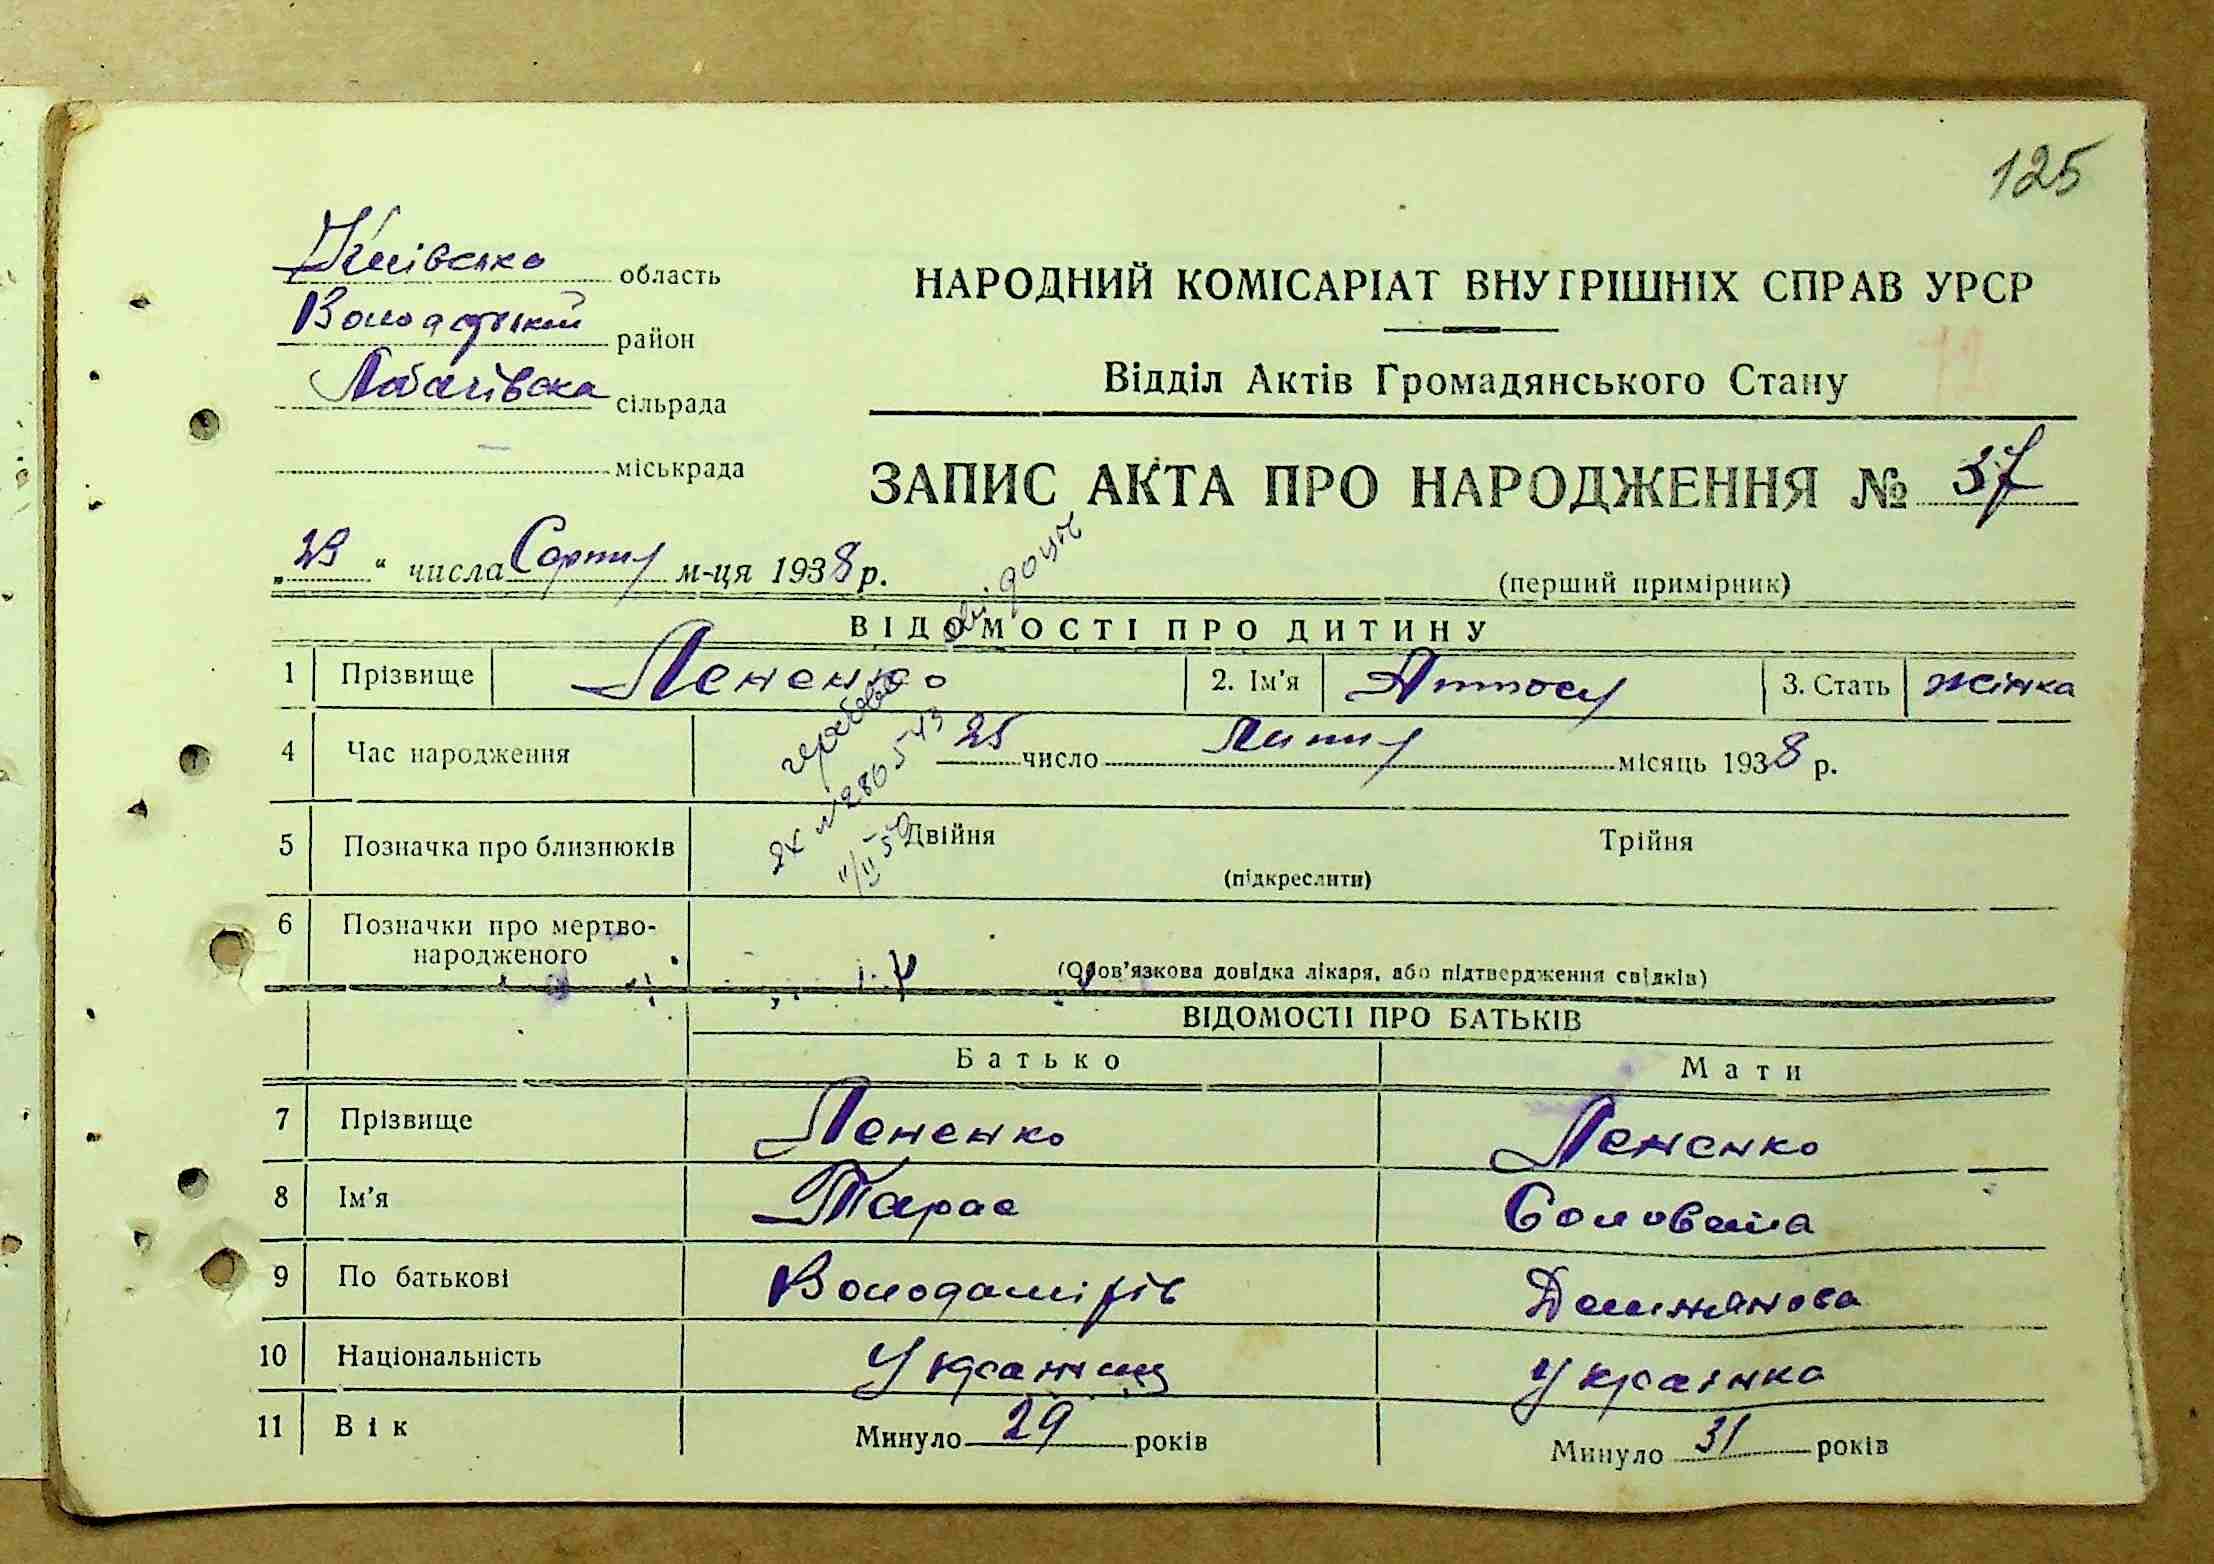 125
Київська область
Володарський район
Лобачівска сільрада
міськрада
НАРОДНИЙ КОМІСАРІАТ ВНУТРІШНІХ СПРАВ УРСР
Відділ Актів Громадянського Стану
ЗАПИС АКТА ПРО НАРОДЖЕННЯ № 37
„29“ числа Серпня м-ця 1938 р.
(перший примірник)
ВІДОМОСТІ ПРО ДИТИНУ
1 Прізвище Лененко 2. Ім'я 3. Стать жінка
4 Час народження 25 число Липня місяць 1938 р.
5 Позначка про близнюків Двійня Трійня
(підкреслити)
6 Позначки про мертво-
народженого
(Обов'язкова довідка лікаря, або підтвердження свідків)
ВІДОМОСТІ ПРО БАТЬКІВ
Батько Мати
7 Прізвище Лененко Лененко
8 Ім'я Тарас
9 По батькові Володамірів Демянова
10 Національність Українец Українка
11 Вік Минуло 29 років Минуло 31 років